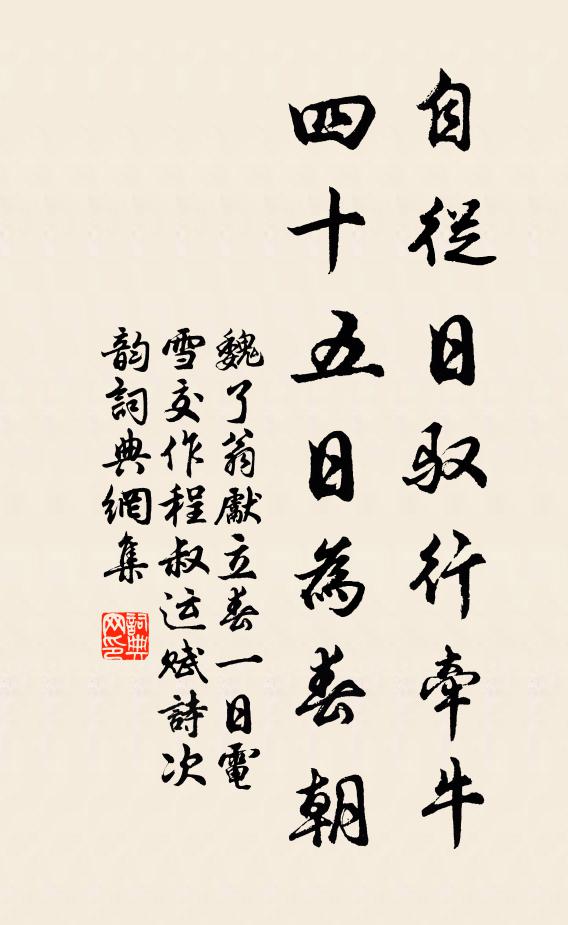 自從日馭行牽牛
四十五日為春朝
魏了翁獻立春一日電
雪交作程叔运賦詩次
韵詞典網集
詞典
网印